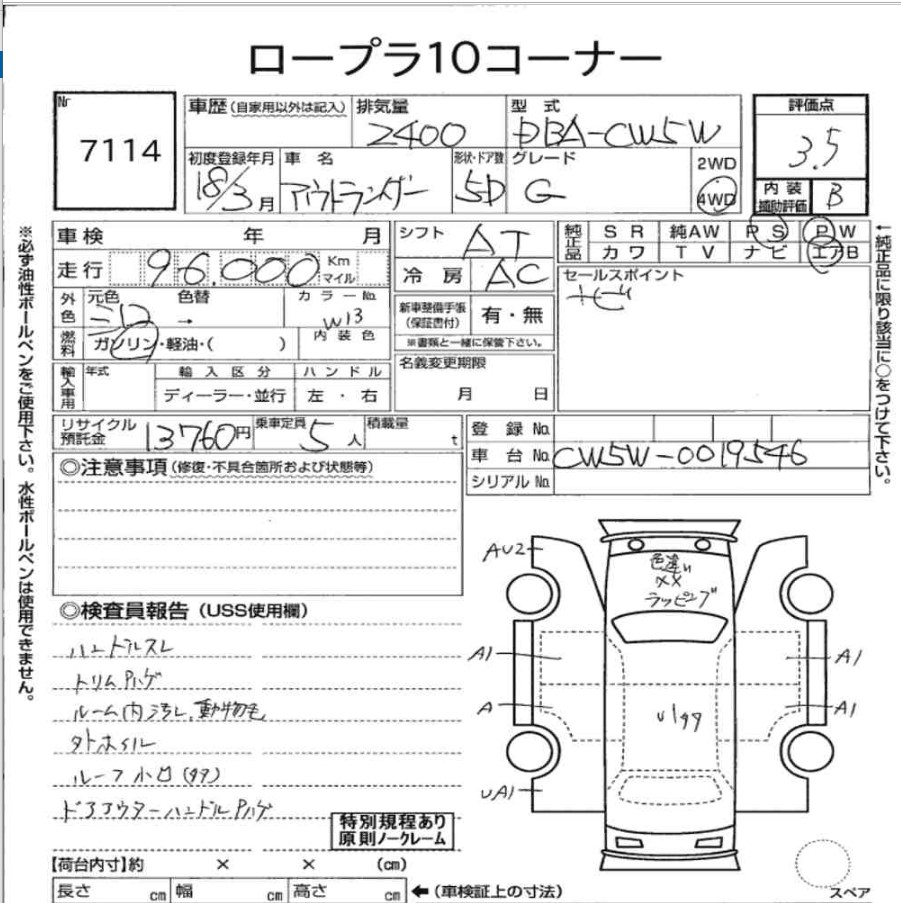 ロープラ10コーナー
Nr
7114
車歴(自家用以外は記入)
排気量
2400
型式
DBA-CW5W
評価点
3.5
初度登録年月
18/3月
車名
アウトランダー
形状・ドア数
5D
グレード
G
2WD
4WD
内装
補助評価
B
車検 年 月
走行 96,000 Km
マイル
シフト
AT
冷房
AC
純正品
SR 純AW PS PW
カワ TV ナビ エアB
セールスポイント
ナビ
外色
元色 色替
シロ →
カラーNo.
W13
燃料
ガソリン・軽油・( )
内装色
新車整備手帳
(保証書付)
有・無
※書類と一緒に保管下さい。
名義変更期限
月 日
輸入車用
年式
輸入区分
ディーラー・並行
ハンドル
左・右
リサイクル
預託金
13760円
乗車定員
5人
積載量
t
登録No.
車台No. CW5W-0019546
シリアルNo.
◎注意事項(修復・不具合箇所および状態等)
◎検査員報告(USS使用欄)
ハンドルスレ
トリムPハゲ
ルーム内汚レ、動物毛
外ホイル
ドアアウターハンドルPハゲ
特別規程あり
原則ノークレーム
【荷台内寸】約 × × (cm)
長さ cm 幅 cm 高さ cm
←(車検証上の寸法)
AU2
色違い
XX
ラッピング
A1
A1
A
A1
UA1
スペア
※必ず油性ボールペンをご使用下さい。水性ボールペンは使用できません。
←純正品に限り該当に○をつけて下さい。